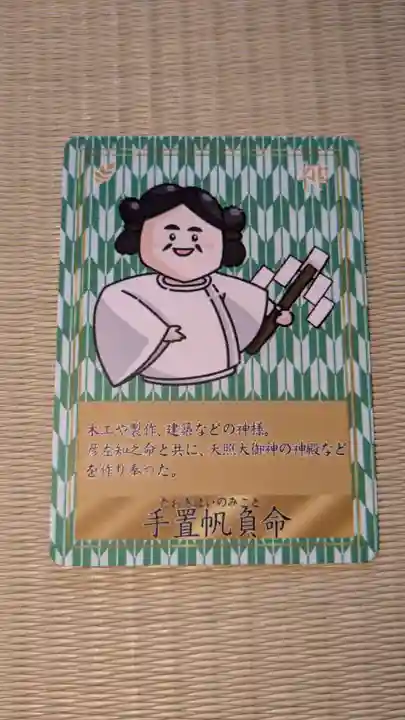 木工や製作、建築などの神様。
彦左知之命と共に、天照大御神の神殿など
を作り奉った。
たおきほいのみこと
手置帆負命